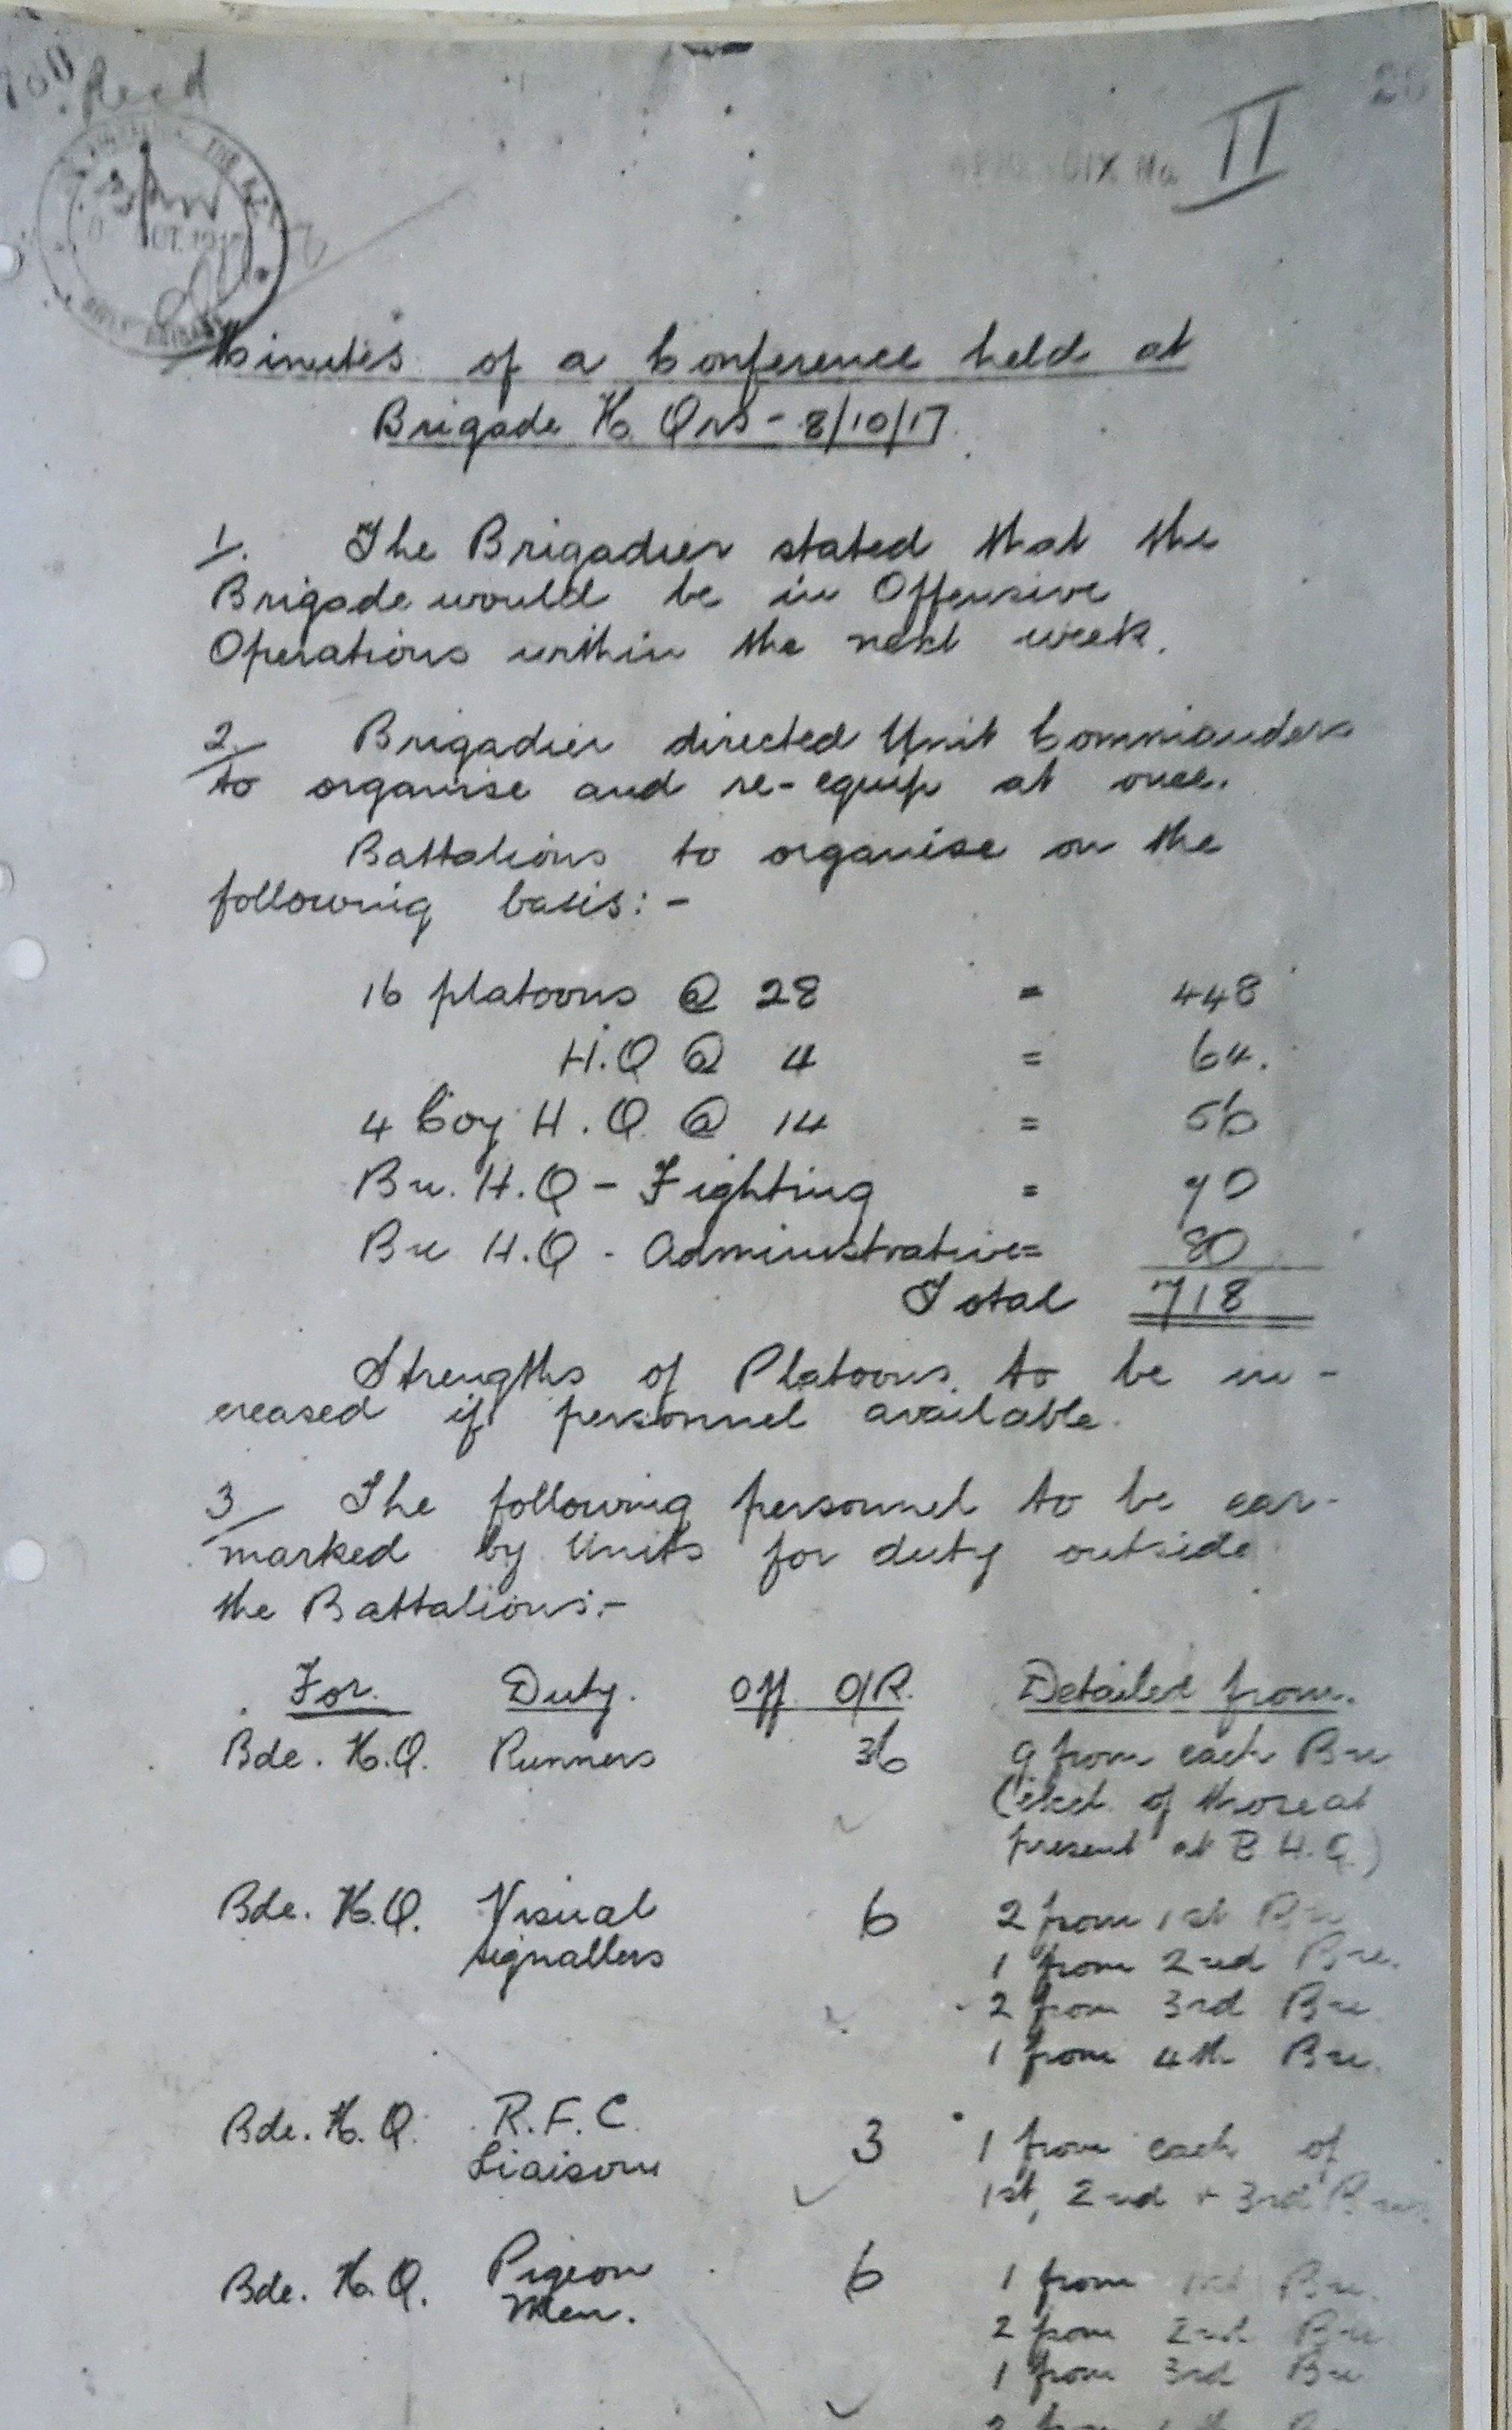 Recd
II
Minutes of a Conference held at
Brigade H. Qrs - 8/10/17.
1. The Brigadier stated that the
Brigade would be in Offensive
Operations within the next week.
2. Brigadier directed Unit Commanders
to organise and re-equip at once.
Battalions to organise on the
following basis:-
16 platoons @ 28 = 448
H.Q @ 4 = 64.
4 Coy H.Q. @ 14 = 56
Bn. H.Q - Fighting = 70
Bn H.Q - Administrative = 80
Total 718
Strengths of Platoons to be in-
creased if personnel available.
3 The following personnel to be ear-
marked by Units for duty outside
the Battalions:-
For. Duty. Off O/R. Detailed from.
Bde. H.Q. Runners 36 9 from each Bn
of those at
present at B.H.Q.)
Bde. H.Q. Visual 6 2 from 1st Bn
signallers 1 from 2nd Bn.
2 from 3rd Bn
1 from 4th Bn.
Bde. H.Q. R.F.C. 3 1 from each of
Liaison 1st, 2nd + 3rd Bns.
Bde. H.Q. Pigeon 6 1 from 1st Bn.
Men. 2 from 2nd Bn
1 from 3rd Bn